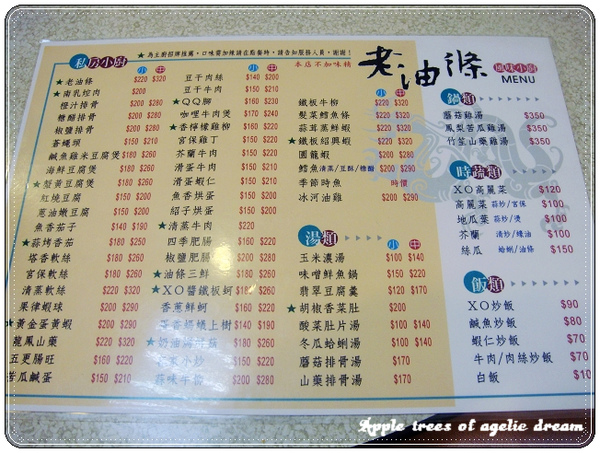 私房小廚
★為主廚招牌推薦,口味需加辣請在點餐時,請告知服務人員,謝謝!
本店不加味精
小 中
★老油條 $220 $320
★南乳焢肉 $200
橙汁排骨 $200 $280
糖醋排骨 $200 $280
椒鹽排骨 $200 $280
蒼蠅頭 $150 $210
鹹魚雞米豆腐煲 $180 $260
海鮮豆腐煲 $180 $260
★型黃豆腐煲 $180 $260
紅燒豆腐 $150 $200
蔥油嫩豆腐 $150 $200
魚香茄子 $140 $190
★蒜烤香茄 $180 $250
塔香軟絲 $180 $260
宮保軟絲 $180 $260
清蒸軟絲 $220 $320
果律蝦球 $200 $280
★黃金蛋黃蝦 $200 $290
龍鳳山藥 $220 $320
五更腸旺 $160 $220
苦瓜鹹蛋 $150 $210
小 中
豆干肉絲 $140 $200
豆干牛肉 $150 $210
★QQ腳 $160 $230
咖哩牛肉煲 $170 $240
★香檸檬雞柳 $160 $220
宮保雞丁 $150 $220
芥蘭牛肉 $150 $220
滑蛋牛肉 $150 $220
滑蛋蝦仁 $150 $210
魚香烘蛋 $150 $200
紹子烘蛋 $150 $200
★清蒸牛肉 $220 $320
四季肥腸 $160 $220
椒鹽肥腸 $200 $280
★油條三鮮 $180 $260
★XO醬鐵板蚵 $180 $260
香蔥鮮蚵 $160 $220
$140 $190
$150 $220
$160 $220
$200 $280
老油條 風味小廚
MENU
小 中
鐵板牛柳 $220 $320
髮菜鱈魚條 $220 $320
蒜茸蒸鮮蝦 $200 $290
★鐵板紹興蝦 $220 $320
團龍蝦 $200 $280
鱈魚清蒸/豆酥/糖醋 $200 $300
季節時魚 時價
冰河油雞 $200 $290
湯類
小 中
玉米濃湯 $100 $150
味噌鮮魚鍋 $150 $220
翡翠豆腐羹 $120 $170
★胡椒香菜肚 $200
酸菜肚片湯 $100 $140
冬瓜蛤蜊湯 $100 $140
蘑菇排骨湯 $170
山藥排骨湯 $170
鍋類
蘑菇雞湯 $350
鳳梨苦瓜雞湯 $350
竹笙山藥雞湯 $350
時蔬類
XO高麗菜 $120
高麗菜 蒜炒/宮保 $100
地瓜葉 蒜炒/燙 $100
芥蘭 清炒/蠔油 $100
絲瓜 蛤蜊/油條 $150
飯類
XO炒飯 $90
鹹魚炒飯 $80
蝦仁炒飯 $70
牛肉/肉絲炒飯 $70
白飯 $10
Apple trees of agelie dream